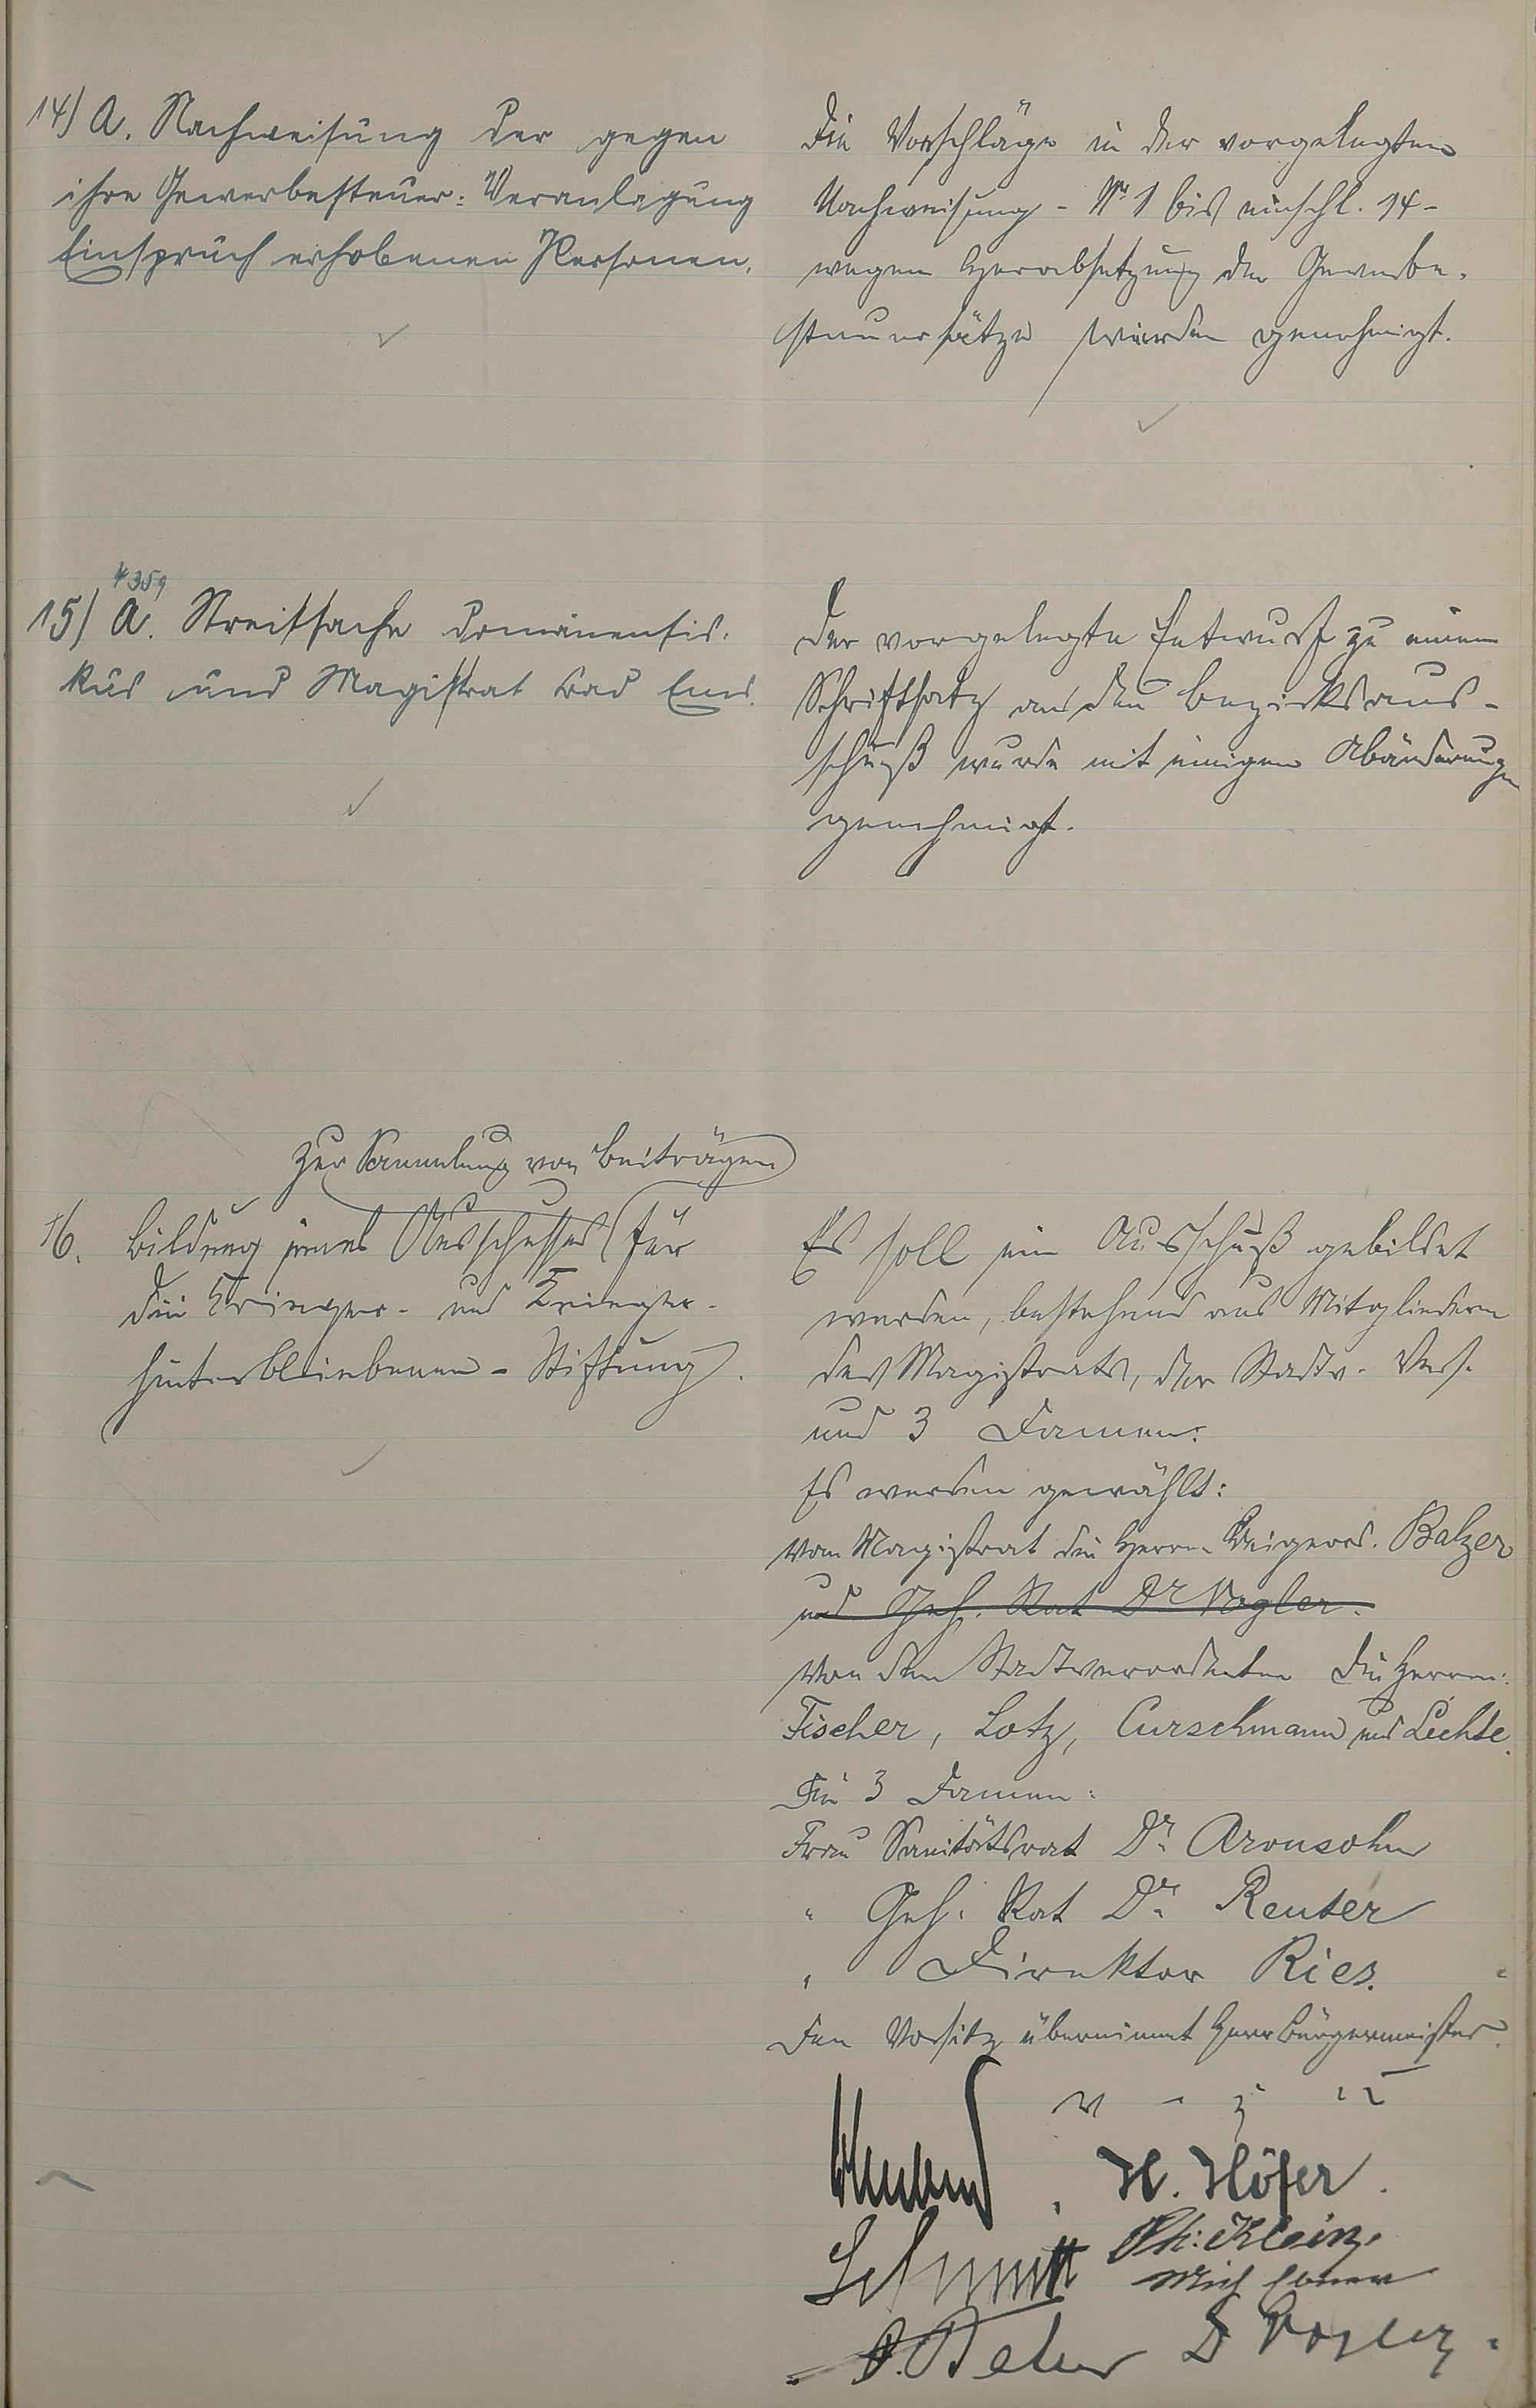 14) A. Nachweisung der gegen
ihre Gewerbesteuer-Veranlagung
Einspruch erhobenen Personen.
Die Vorschläge in der vorgelegten
Nachweisung - Nr 1 bis einschl. 14 -
wegen Herabsetzung der Gewerbe-
steuersätze wurden genehmigt.
15) A. Streitsache Domänenfis-
kus und Magistrat Bad Ems.
Der vorgelegte Entwurf zu einem
Schriftsatz an den Bezirksaus-
schuß wurde mit einigen Abänderungen
genehmigt.
zur Sammlung von Beiträgen
16. Bildung eines Ausschusses für
die Krieger- und Krieger-
hinterbliebenen-Stiftung.
Es soll ein Ausschuß gebildet
werden, bestehend aus Mitgliedern
des Magistrats, der Stadtv. Vers.
und 3 Damen.
Es werden gewählt:
vom Magistrat die Herrn Beigeord. Balzer
und Geh. Rat Dr Vogler.
Von den Stadtverordneten die Herren:
Fischer, Lotz, Curschmann und Lichte.
Die 3 Damen:
Frau Sanitätsrat Dr. Aronsohn
" Geh. Rat Dr. Reuter
" Direktor Ries.
Den Vorsitz übernimmt Herr Bürgermeister.
v. g. u.
H. Höfer.
Schmitt Ph. Klein.
D Vogler.